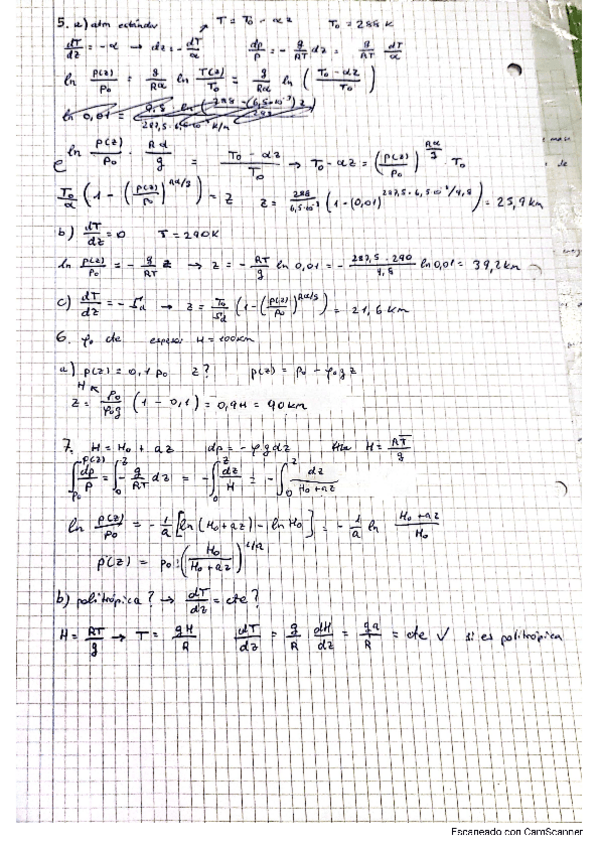 5. a) atm estándar T = T₀ - αz T₀ = 288 K
dT/dz = -α → dz = -dT/α dp/p = -g/RT dz = g/RT dT/α
ln p(z)/p₀ = g/Rα ln T(z)/T₀ = g/Rα ln (T₀ - αz / T₀)
e^(ln p(z)/p₀ · Rα/g) = T₀ - αz / T₀ → T₀ - αz = (p(z)/p₀)^(Rα/g) T₀
T₀/α (1 - (p(z)/p₀)^(Rα/g)) = z
b) dT/dz = 0 T = 290K
ln p(z)/p₀ = -g/RT z → z = -RT/g ln 0,01 = - 287,5 · 290 / 9,8 ln 0,01 = 39,2 km
c) dT/dz = -Γd → z = T₀/Γd (1 - (p(z)/p₀)^(Rα/g)) = 21,6 km
6. ρ₀ de espesor H = 100km
a) p(z) = 0,1 p₀ z? p(z) = p₀ - ρ₀ g z
H
z = p₀/ρ₀g (1 - 0,1) = 0,9H = 90 km
7. H = H₀ + az dp = -ρg dz H = RT/g
∫p₀^p(z) dp/p = ∫₀^z - g/RT dz = -∫₀^z dz/H = -∫₀^z dz / H₀ + az
ln p(z)/p₀ = - 1/a [ln (H₀ + az) - ln H₀] = - 1/a ln H₀ + az / H₀
p(z) = p₀ · (H₀ / H₀ + az)^(1/a)
b) politrópica? → dT/dz = cte?
H = RT/g → T = gH/R dT/dz = g/R dH/dz = ga/R = cte ✓ si es politrópica
Escaneado con CamScanner